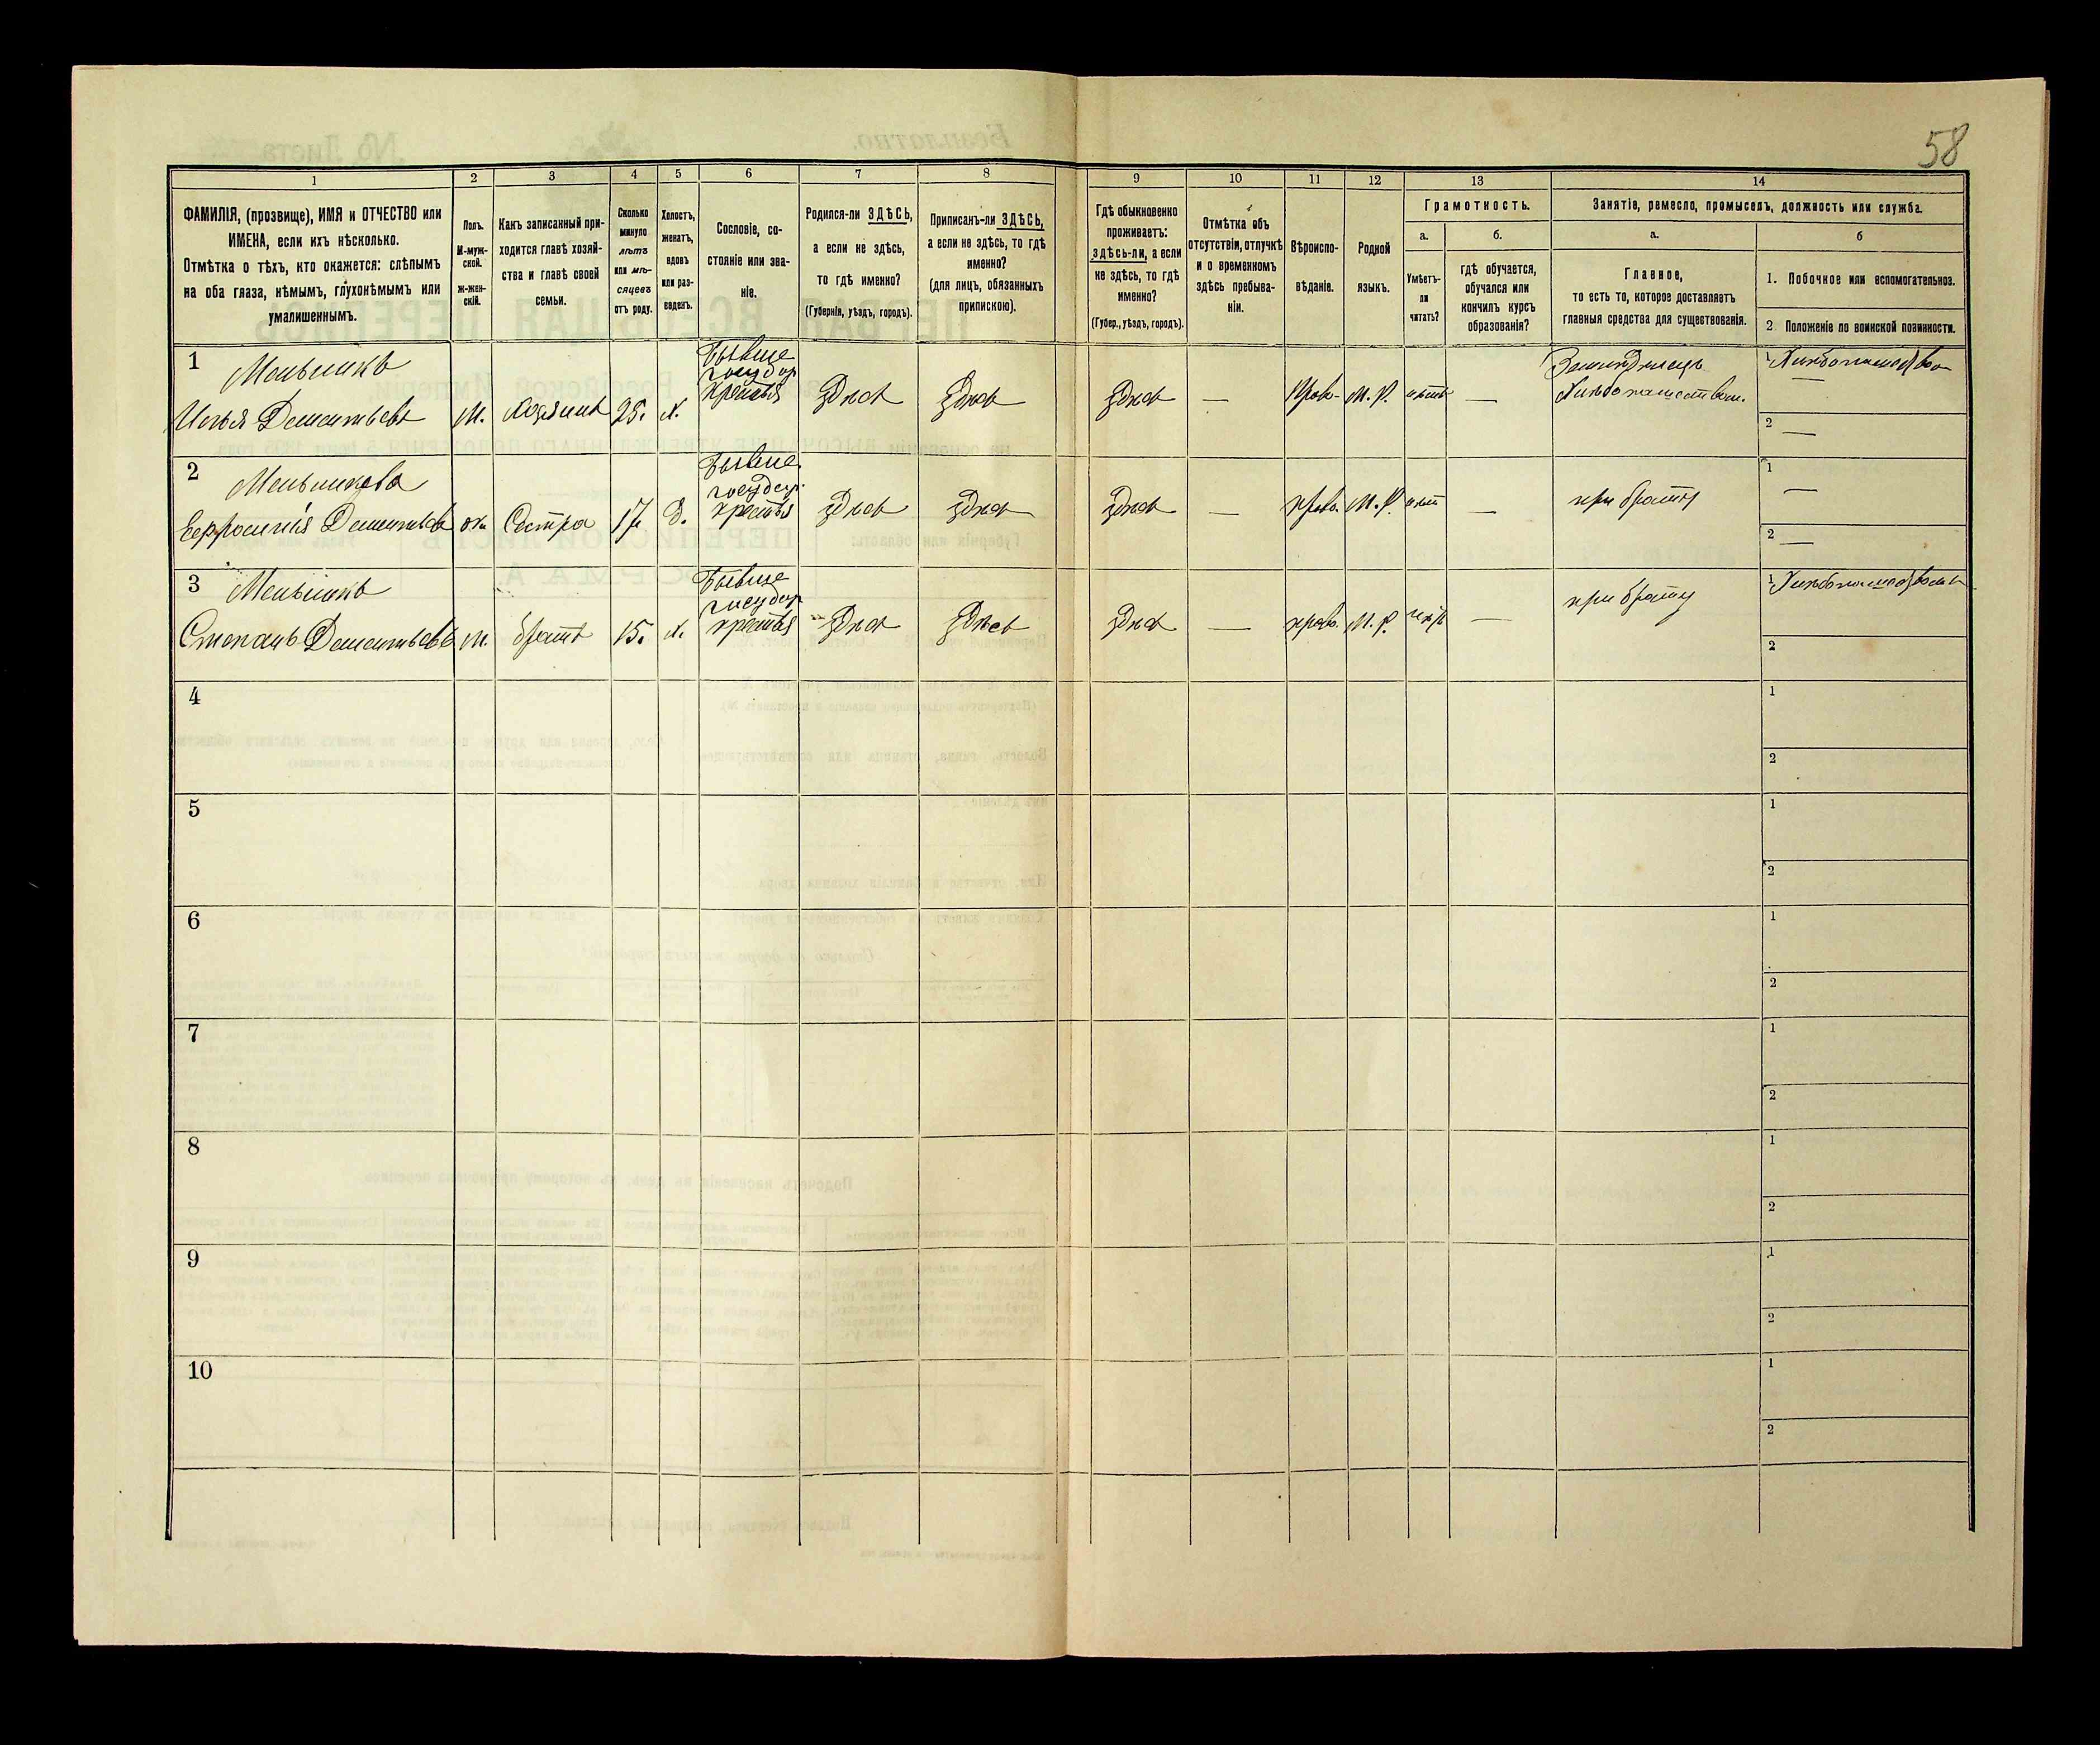 58
1 2 3 4 5 6 7 8 9 10 11 12 13 14
ФАМИЛІЯ, (прозвище), ИМЯ и ОТЧЕСТВО или
ИМЕНА, если ихъ нѣсколько.
Отмѣтка о тѣхъ, кто окажется: слѣпымъ
на оба глаза, нѣмымъ, глухонѣмымъ или
умалишеннымъ.
Полъ.
М-муж-
ской.
Ж-жен-
скій.
Какъ записанный при-
ходится главѣ хозяй-
ства и главѣ своей
семьи.
Сколько
минуло
лѣтъ
или мѣ-
сяцевъ
отъ роду.
Холостъ,
женатъ,
вдовъ
или раз-
веденъ.
Сословіе, со-
стояніе или зва-
ніе.
Родился-ли ЗДѢСЬ,
а если не здѣсь,
то гдѣ именно?
(Губернія, уѣздъ, городъ).
Приписанъ-ли ЗДѢСЬ,
а если не здѣсь, то гдѣ
именно?
(для лицъ, обязанныхъ
припискою).
Гдѣ обыкновенно
проживаетъ:
здѣсь-ли, а если
не здѣсь, то гдѣ
именно?
(Губер., уѣздъ, городъ).
Отмѣтка объ
отсутствіи, отлучкѣ
и о временномъ
здѣсь пребыва-
ніи.
Вѣроиспо-
вѣданіе.
Родной
языкъ.
Грамотность.
а.
Умѣетъ-
ли
читать?
б.
гдѣ обучается,
обучался или
кончилъ курсъ
образованія?
Занятіе, ремесло, промыселъ, должность или служба.
а.
Главное,
то есть то, которое доставляетъ
главныя средства для существованія.
б
1. Побочное или вспомогательное.
2. Положеніе по воинской повинности.
1
Илья Дементьевъ М. Хозяинъ 25. х.
Бывше
государ
крестья
М. Р. нѣтъ —
1
—
2 —
2 Меньшикова
Ефросинія Дементьева ж. Сестра 17. д.
Бывше
государ.
крестья
прав. М. Р. нѣтъ — при братѣ
1 —
2 —
3
Степанъ Дементьевъ М. братъ 15. х.
Бывше
государ
крестья
— прав. М. Р. — при братѣ
1
2
4 1
2
5 1
2
6 1
2
7 1
2
8 1
2
9 1
2
10 1
2